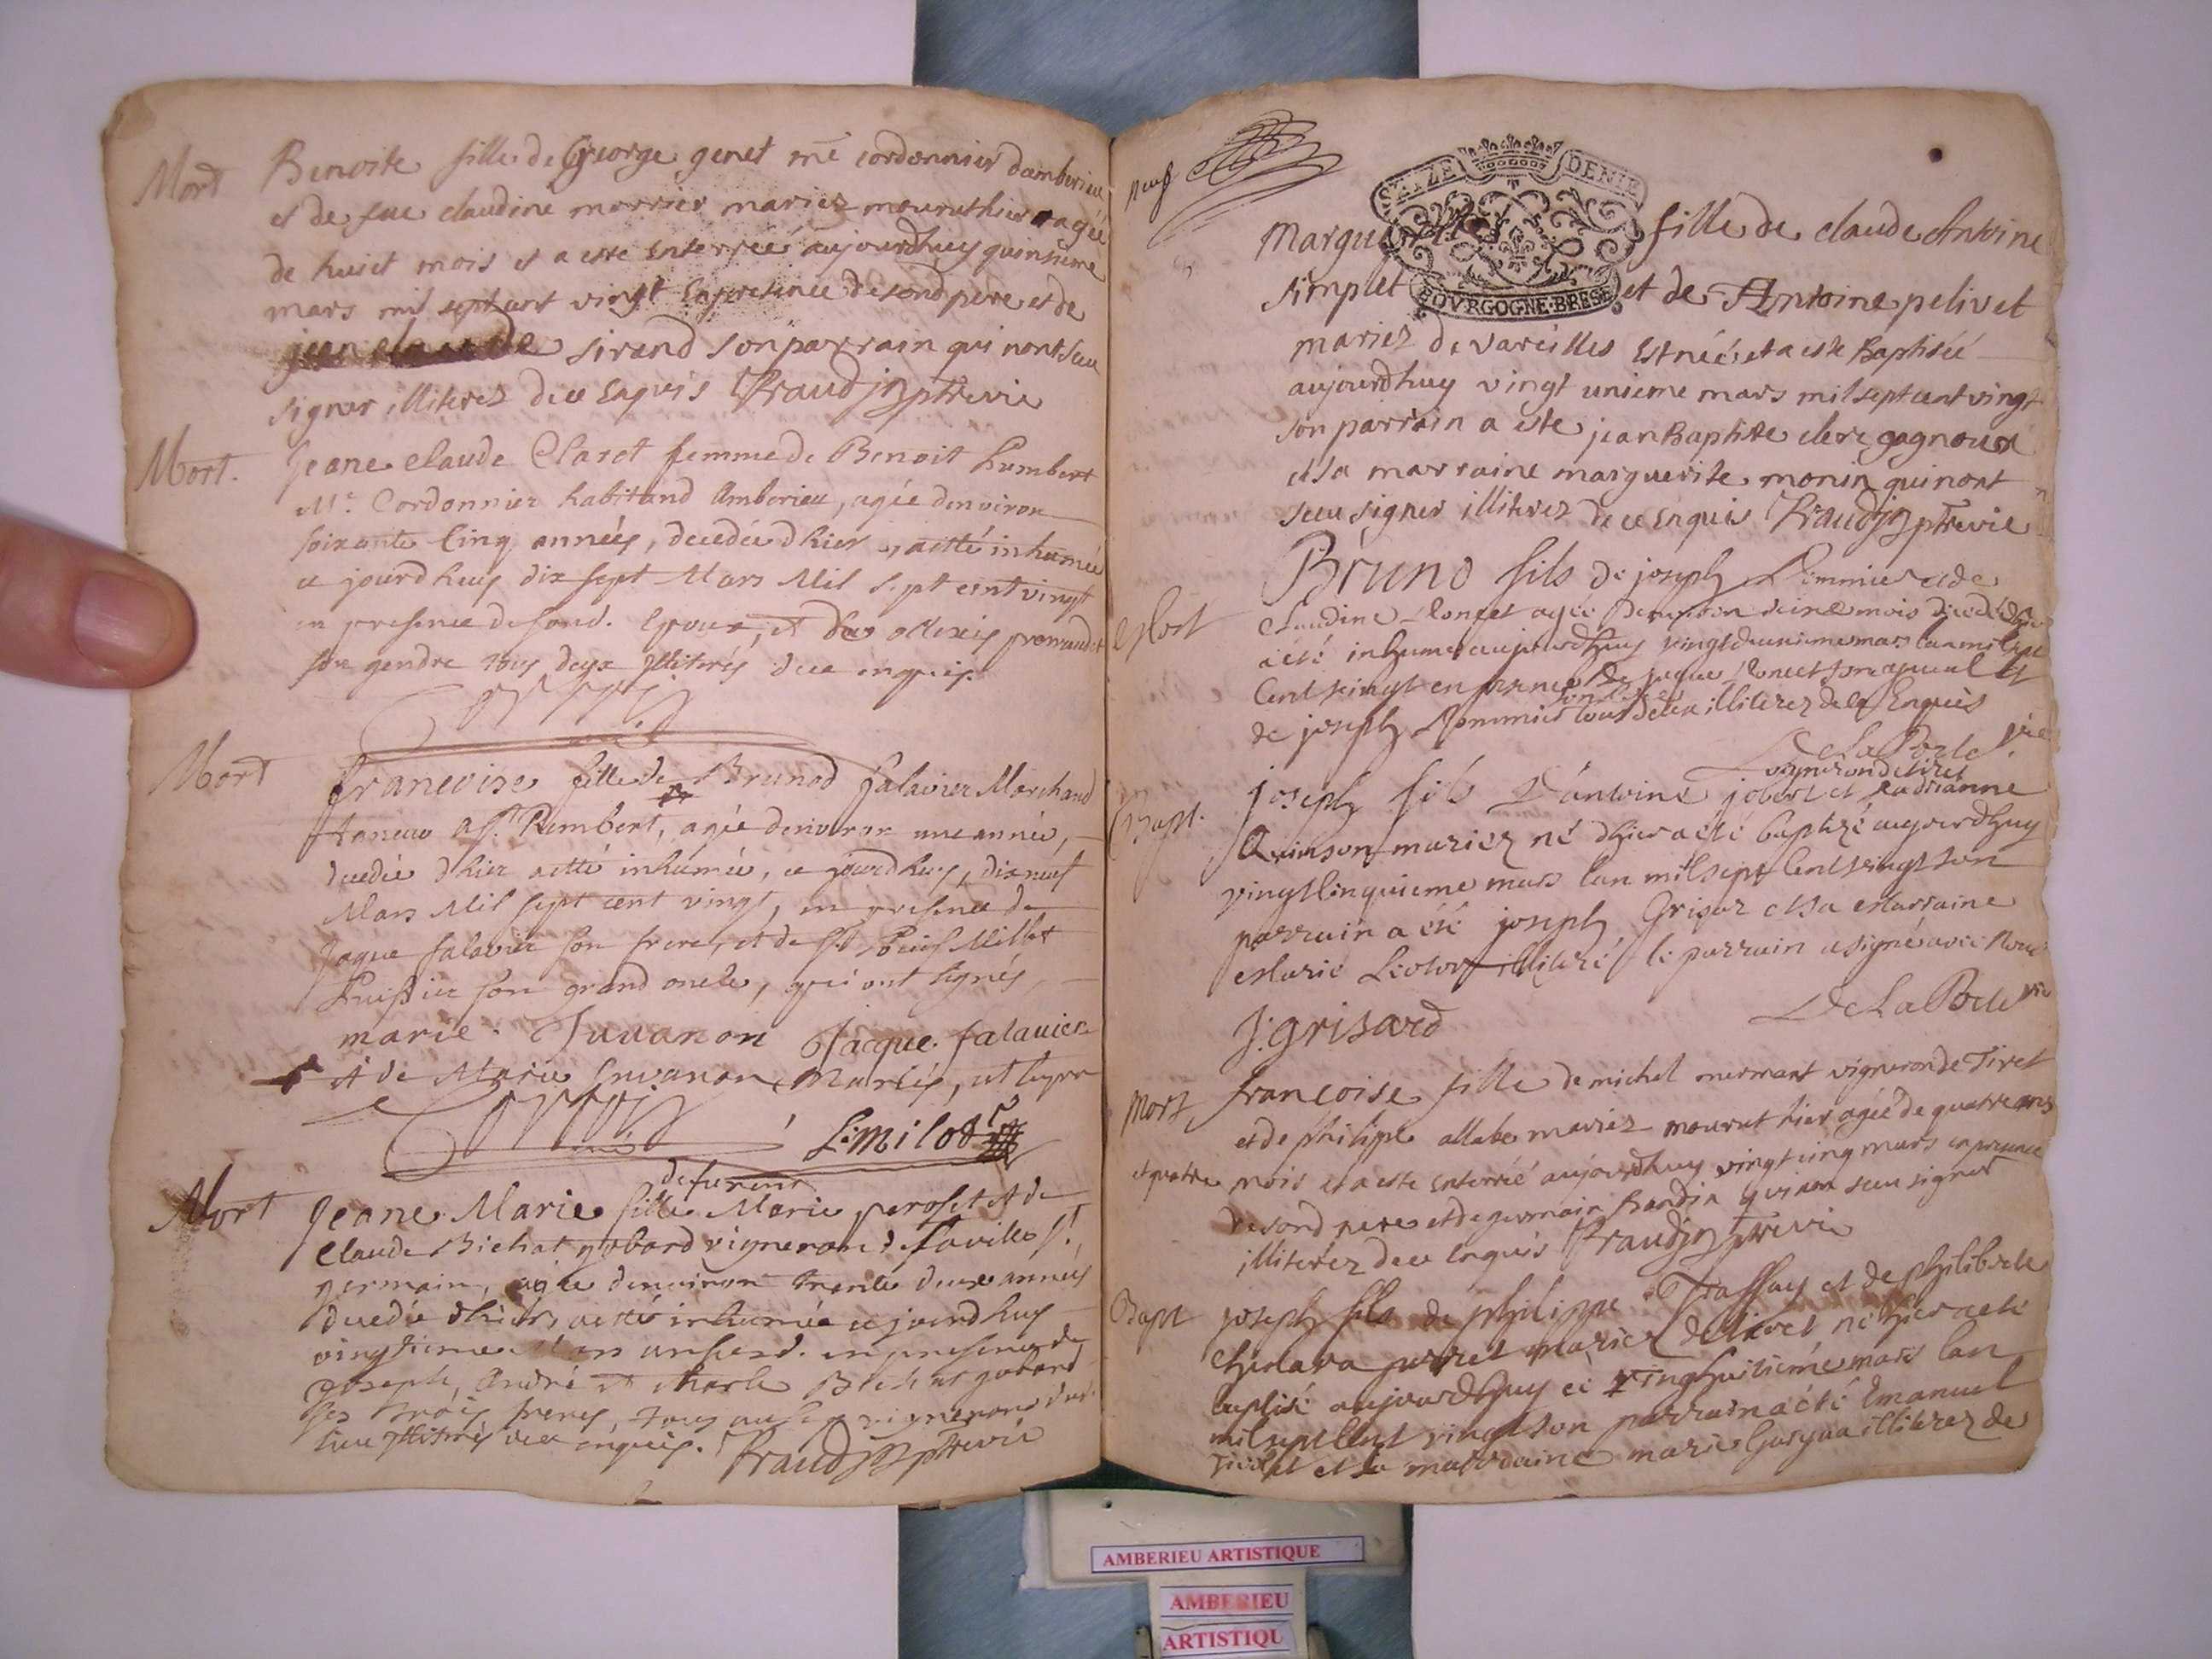 Mort
Benoite fille de George genet me cordonnier damberieu
et de feue claudine morrier mariez mourut hier agée
de huict mois et a esté Enterreé aujourdhuy quinsieme
mars mil sept cent vingt En presence de sond pere et de
jean claude sirand son parrain qui nont sceu
signer illiterez de ce Enquis Fraud jz ptre vic
Mort.
Jeane claude Claret femme de Benoit humbert
Me. Cordonnier habitand Amberieu, agée denviron
soixante Cinq années, decedée dhier, a esté inhumée
ce jourdhuy dix sept Mars Mil sept cent vingt
en presence de sond. Epoux, et
son gendre tous deux Illiterés de ce enquis.
Mort
francoise fille de Brunod falavier Marchand
Taneur a St. Rembert, agée denviron une année,
decedée dhier a esté inhumée, ce jourdhuy, dix neuf
Mars Mil sept cent vingt, en presence de
Jaque falavier son frere, et de Sr. Millet
huissier son grand oncle, qui ont signés,
marie Juvanon Jacque falavier
et de Marie Juvanon Mariés,
L. milod
Mort
defunt
Jeane Marie fille Marie peroset et de
Claude Bichat gobard vigneron de la ville St.
germain, agée denviron trente deux années
decedée dhier, a esté inhumée ce jourdhuy
vingtieme Mars en presence de
Joseph, André et charle Bichat gobard
ses trois freres, tous aussi vignerons dud.
lieu Illiterés de ce enquis. Fraud jz ptre vic
neuf
SEIZE DENIE
BOVRGOGNE·BRESE
Marguerite fille de claude Antoine
simplet et de Antoine pelivet
mariez de vareilles Est neé et a esté Baptisée
aujourdhuy vingt unieme mars mil sept cent vingt
son parrain a esté jean Baptiste clerc gagneux
et sa marraine marguerite monin qui nont
sceu signer illiterez de ce Enquis Fraud jz ptre vic
Mort
Bruno fils de joseph et de
Claudine Ronet agée denviron mois decedé dhier
a été inhumé aujourdhuy vingt deuxieme mars lan mil sept
Cent vingt en presence de jaque Ronet son ayeul et
de joseph tous deux illiterez de ce Enquis
De La Porte vic
Bapt.
vigneron de tiret
joseph fils Dantoine jobert et Landrianne
Quinson mariez né dhier a été baptizé aujourdhuy
vingt cinquieme mars lan mil sept Cent vingt son
parrain a été joseph Grisar et sa Marraine
Marie illiteré le parrain a signé avec Nous
J: grisard
De La Porte vic
Mort
francoise fille de michel mermant vigneron de Tiret
et de philipe allabe mariez mourut hier agée de quatre ans
et quatre mois et a esté enterrée aujourdhuy vingt cinq mars en presence
de sond pere et de germain Bandin qui nont sceu signer
illiterez de ce enquis Fraud jz ptre vic
Bapt
joseph fils de philippe Traffay et de philiberte
chenava perret mariez de tiret né hier a été
baptisé aujourdhuy ce vinghuitiéme mars lan
mil sept Cent vingt son parrain a été Emanuel
Tivolet et sa marraine marie illiterez de
AMBERIEU ARTISTIQUE
AMBERIEU
ARTISTIQU